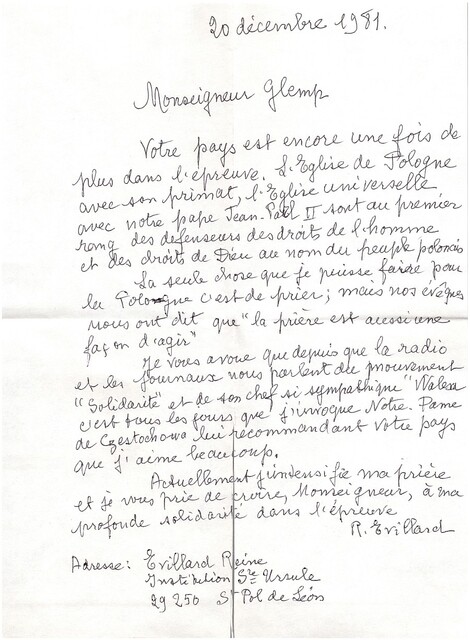 20 décembre 1981.
Monseigneur Glemp
Votre pays est encore une fois de
plus dans l'épreuve. L'Eglise de Pologne
avec son primat, l'Eglise universelle
avec notre pape Jean-Paul II sont au premier
rang des defenseurs des droits de l'homme
et des droits de Dieu au nom du peuple polonais
La seule chose que je puisse faire pour
la Pologne c'est de prier ; mais nos évêques
nous ont dit que "la prière est aussi une
façon d'agir"
Je vous avoue que depuis que la radio
et les journaux nous parlent du mouvement
"Solidarité" et de son chef si sympathique "Walesa
c'est tous les jours que j'invoque Notre-Dame
de Czestochowa lui recommandant votre pays
que j'aime beaucoup.
Actuellement j'intensifie ma prière
et je vous prie de croire, Monseigneur, à ma
profonde solidarité dans l'épreuve
R. Evillard
Adresse : Evillard Reine
Institution Ste Ursule
29 250 St Pol de Léon